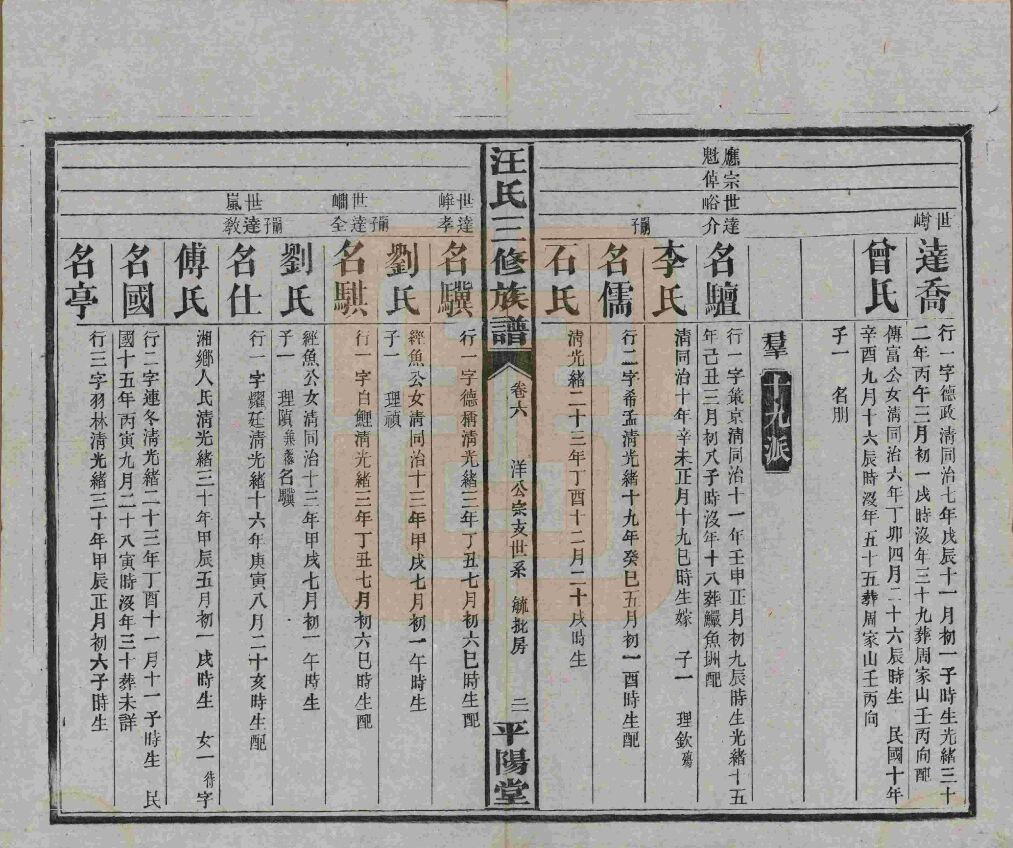 世嶟
達喬
行一字德政清同治七年戊辰十一月初一子時生光緒三十
二年丙午三月初一戌時沒年三十九葬周家山壬丙向配
曾氏
傳富公女清同治六年丁卯四月二十六辰時生 民國十年
辛酉九月十六辰時沒年五十五葬周家山壬丙向
子一 名朋
羣 十九派
應宗世達
魁倬峪介
名驙
行一字策京清同治十一年壬申正月初九辰時生光緒十五
年己丑三月初八子時沒年十八葬鱷魚洲配
李氏
清同治十年辛未正月十九巳時生嫁 子一 理欽殤
嗣子
名儒
行二字希孟清光緒十九年癸巳五月初一酉時生配
石氏
清光緒二十三年丁酉十二月二十戌時生
汪氏三修族譜
卷六 洋公宗支世系 毓批房 三
平陽堂
世達
峰孝
名驥
行一字德稱清光緒三年丁丑七月初六巳時生配
劉氏
經魚公女清同治十三年甲戌七月初一午時生
子一 理禎
世達
嗣子
全
名騏
行一字白鯉清光緒三年丁丑七月初六巳時生配
劉氏
經魚公女清同治十三年甲戌七月初一午時生
子一 理禎兼祧名驥
世達
嵐教
嗣子
名仕
行一字耀廷清光緒十六年庚寅八月二十亥時生配
傅氏
湘鄉人氏清光緒三十年甲辰五月初一戌時生 女一 待字
名國
行二字連冬清光緒二十三年丁酉十一月十一子時生 民
國十五年丙寅九月二十八寅時沒年三十葬未詳
名亭
行三字羽林清光緒三十年甲辰正月初六子時生